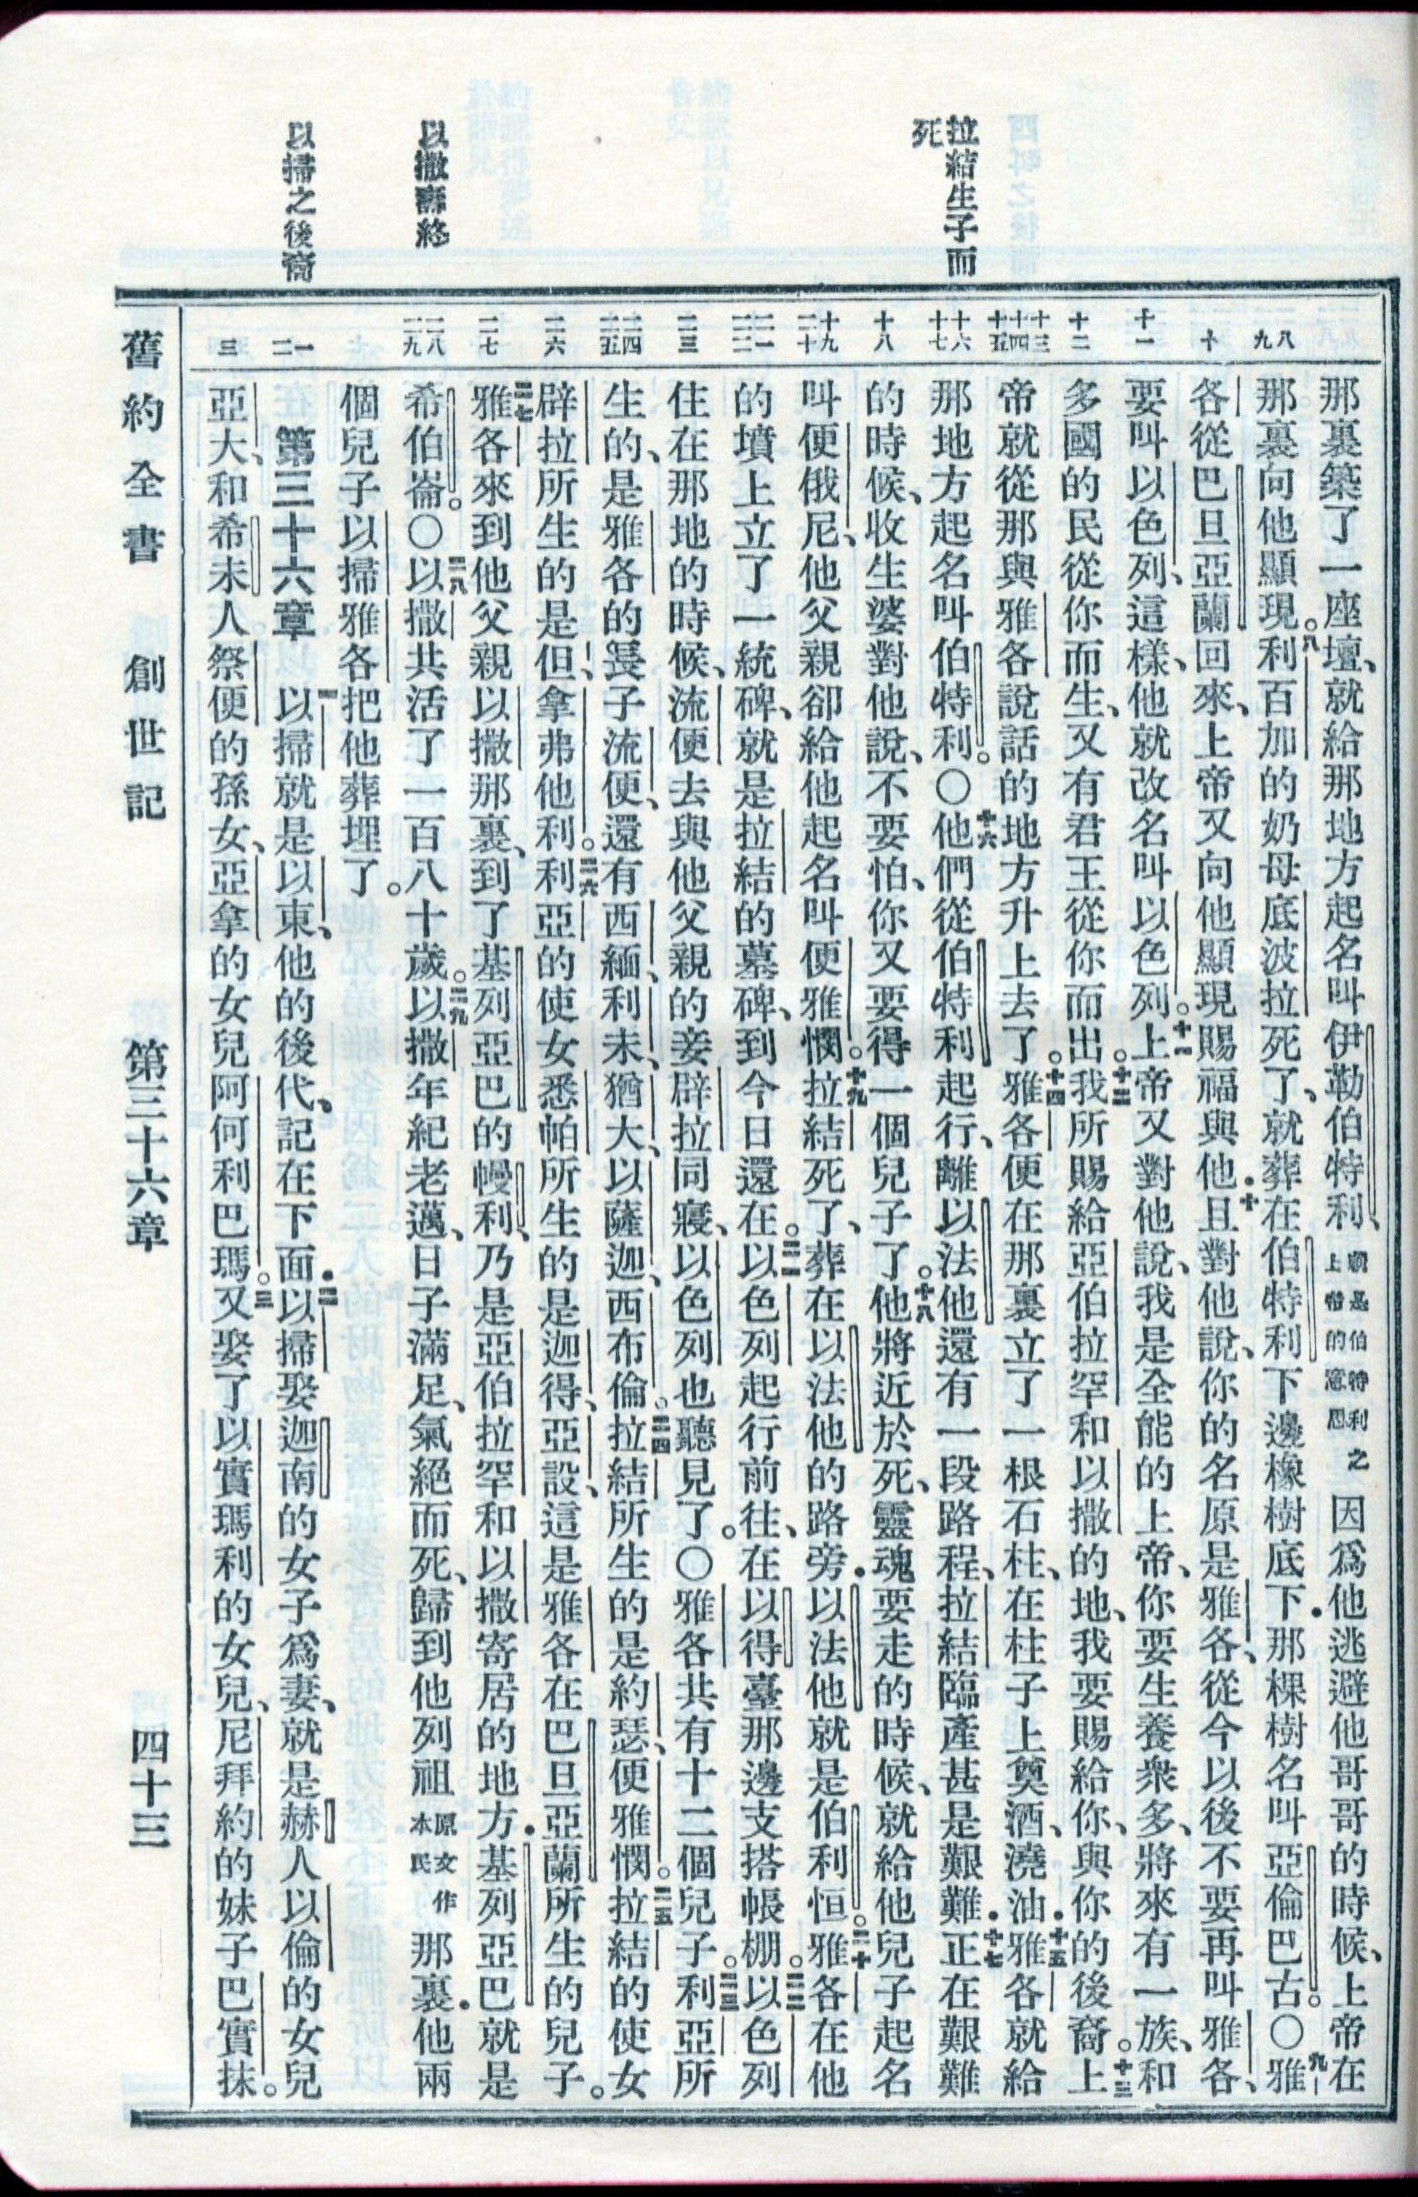 拉結生子而
死
以撒壽終
以掃之後裔
八
九
十
十一
十二
十三
十四
十五
十六
十七
十八
十九
二十
二一
二二
二三
二四
二五
二六
二七
二八
二九
一
二
三
那裏築了一座壇、就給那地方起名叫伊勒伯特利、就是伯特利之上帝的意思因爲他逃避他哥哥的時候、上帝在
那裏向他顯現。八利百加的奶母底波拉死了、就葬在伯特利下邊橡樹底下.那棵樹名叫亞倫巴古。○九雅
各從巴旦亞蘭回來、上帝又向他顯現賜福與他.十且對他說、你的名原是雅各、從今以後不要再叫雅各、
要叫以色列、這樣、他就改名叫以色列。十一上帝又對他說、我是全能的上帝、你要生養衆多、將來有一族、和
多國的民從你而生、又有君王從你而出。十二我所賜給亞伯拉罕和以撒的地、我要賜給你、與你的後裔。十三上
帝就從那與雅各說話的地方升上去了。十四雅各便在那裏立了一根石柱、在柱子上奠酒、澆油.十五雅各就給
那地方起名叫伯特利。○十六他們從伯特利起行、離以法他還有一段路程、拉結臨產甚是艱難.十七正在艱難
的時候、收生婆對他說、不要怕、你又要得一個兒子了。十八他將近於死、靈魂要走的時候、就給他兒子起名
叫便俄尼、他父親卻給他起名叫便雅憫。十九拉結死了、葬在以法他的路旁.以法他就是伯利恒。二十雅各在他
的墳上立了一統碑、就是拉結的墓碑、到今日還在。二一以色列起行前往、在以得臺那邊支搭帳棚。二二以色列
住在那地的時候、流便去與他父親的妾辟拉同寢、以色列也聽見了。○雅各共有十二個兒子。二三利亞所
生的、是雅各的長子流便、還有西緬、利未、猶大、以薩迦、西布倫。二四拉結所生的是約瑟、便雅憫。二五拉結的使女
辟拉所生的是但、拿弗他利。二六利亞的使女悉帕所生的是迦得、亞設、這是雅各在巴旦亞蘭所生的兒子。
二七雅各來到他父親以撒那裏、到了基列亞巴的幔利、乃是亞伯拉罕和以撒寄居的地方.基列亞巴就是
希伯崙。○二八以撒共活了一百八十歲。二九以撒年紀老邁、日子滿足、氣絕而死、歸到他列祖原文作本民那裏.他兩
個兒子以掃雅各把他葬埋了。
第三十六章 一以掃就是以東、他的後代、記在下面.二以掃娶迦南的女子爲妻、就是赫人以倫的女兒
亞大、和希未人祭便的孫女、亞拿的女兒阿何利巴瑪。三又娶了以實瑪利的女兒、尼拜約的妹子巴實抹。
舊約全書 創世記 第三十六章 四十三